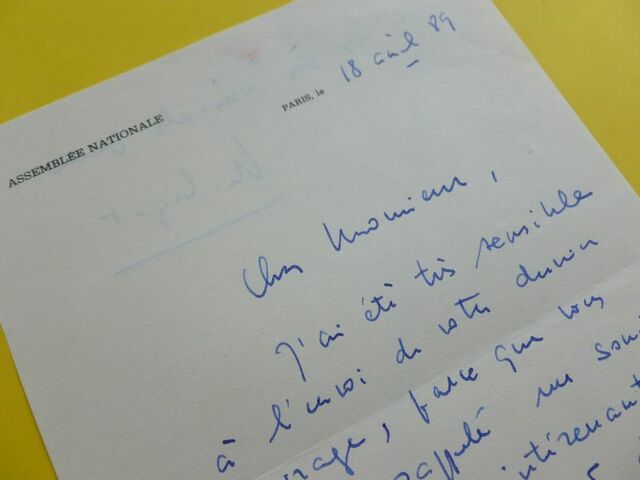 ASSEMBLÉE NATIONALE
PARIS, le 18 avril 89
Cher Monsieur,
J'ai été très sensible
à l'envoi de votre dernier
parce que vous
rappelé un